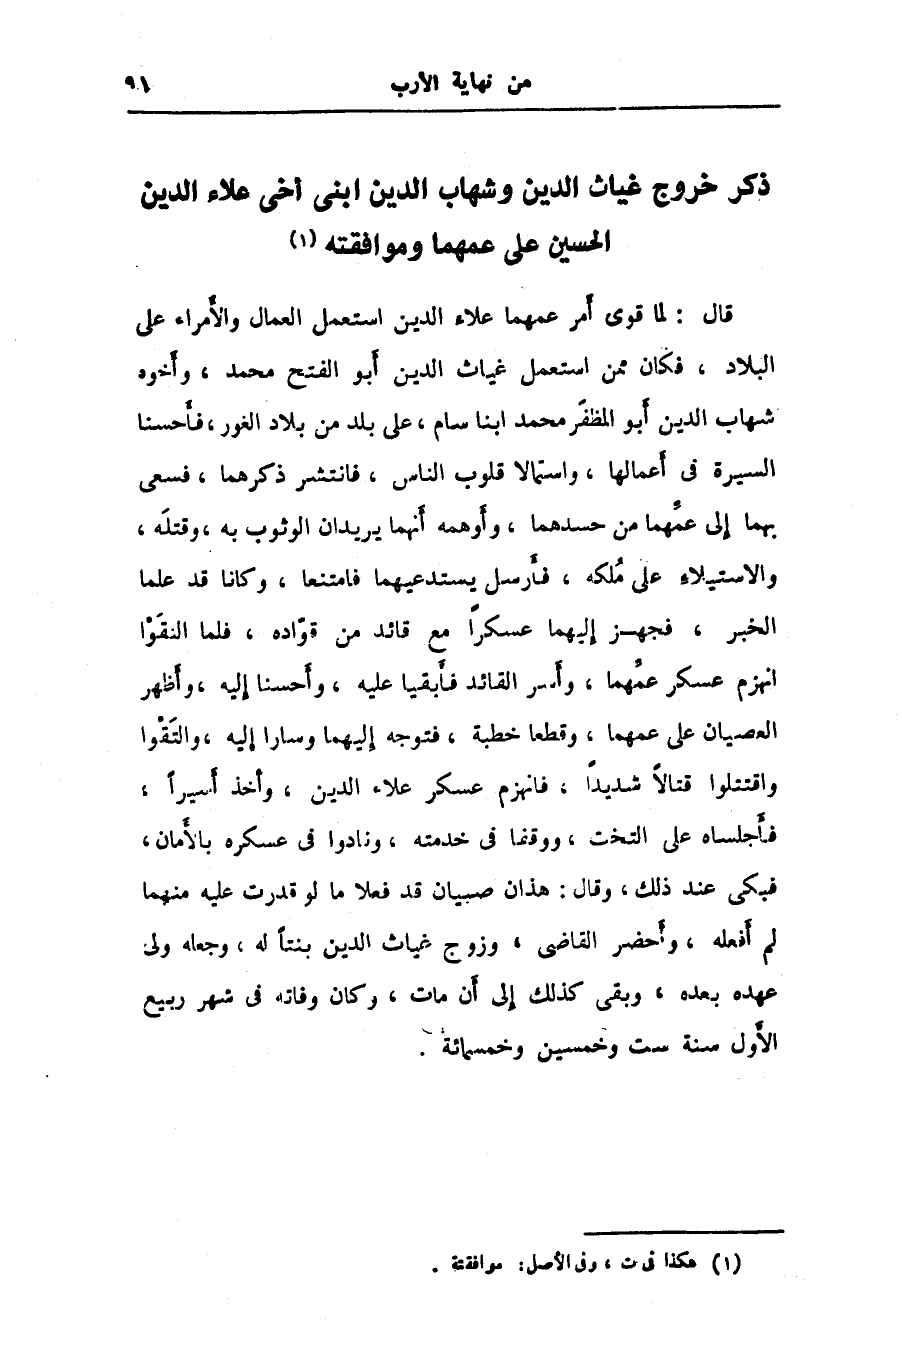 من نهاية الأرب ٩١
ذكر خروج غياث الدين وشهاب الدين ابنى أخى علاء الدين
الحسين على عمهما وموافقته (١)
قال : لما قوى أمر عمهما علاء الدين استعمل العمال والأمراء على
البلاد ، فكان ممن استعمل غياث الدين أبو الفتح محمد ، وأخوه
شهاب الدين أبو المظفَر محمد ابنا سام ، على بلد من بلاد الغور ، فأحسنا
السيرة فى أعمالها ، واستمالا قلوب الناس ، فانتشر ذكرهما ، فسعى
بهما إلى عمُّهما من حسدهما ، وأوهمه أنهما يريدان الوثوب به ، وقتلَه ،
والاستيلاء على مُلكه ، فأرسل يستدعيهما فامتنعا ، وكانا قد علما
الخبر ، فجهـز إليهما عسكراً مع قائد من قوّاده ، فلما التقَوْا
انهزم عسكر عمُّهما ، وأسر القائد فأبقيا عليه ، وأحسنا إليه ، وأظهر
العصيان على عمهما ، وقطعا خطبة ، فتوجه إليهما وسارا إليه ، والتَقْوا
واقتتلوا قتالاً شديداً ، فانهزم عسكر علاء الدين ، وأخذ أسيراً ،
فأجلساه على التخت ، ووقفا فى خدمته ، ونادوا فى عسكره بالأمان ،
فبكى عند ذلك ، وقال : هذان صبيان قد فعلا ما لو قدرت عليه منهما
لم أفعله ، وأحضر القاضى ، وزوج غياث الدين بنتاً له ، وجعله ولى
عهده بعده ، وبقى كذلك إلى أن مات ، وكان وفاته فى شهر ربيع
الأول سنة ست وخمسين وخمسمائة .
(١) هكذا فى ت ، وفى الأصل : موافقة .